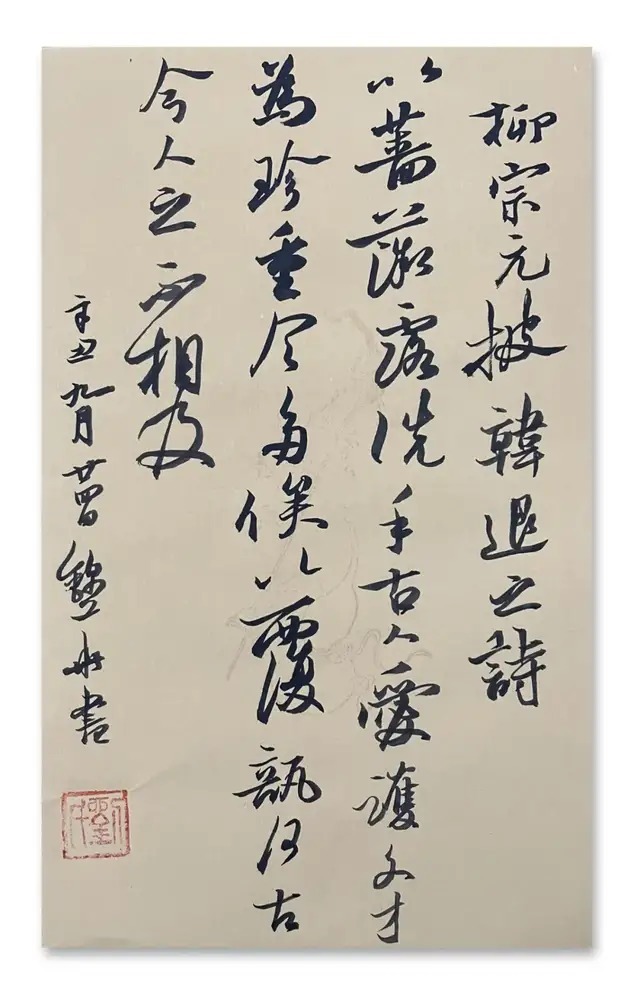 柳宗元披韓退之詩
以薔薇露洗手古人愛護文才
為珍重多俟以覆瓿何古
今人之不相及
辛丑九月書